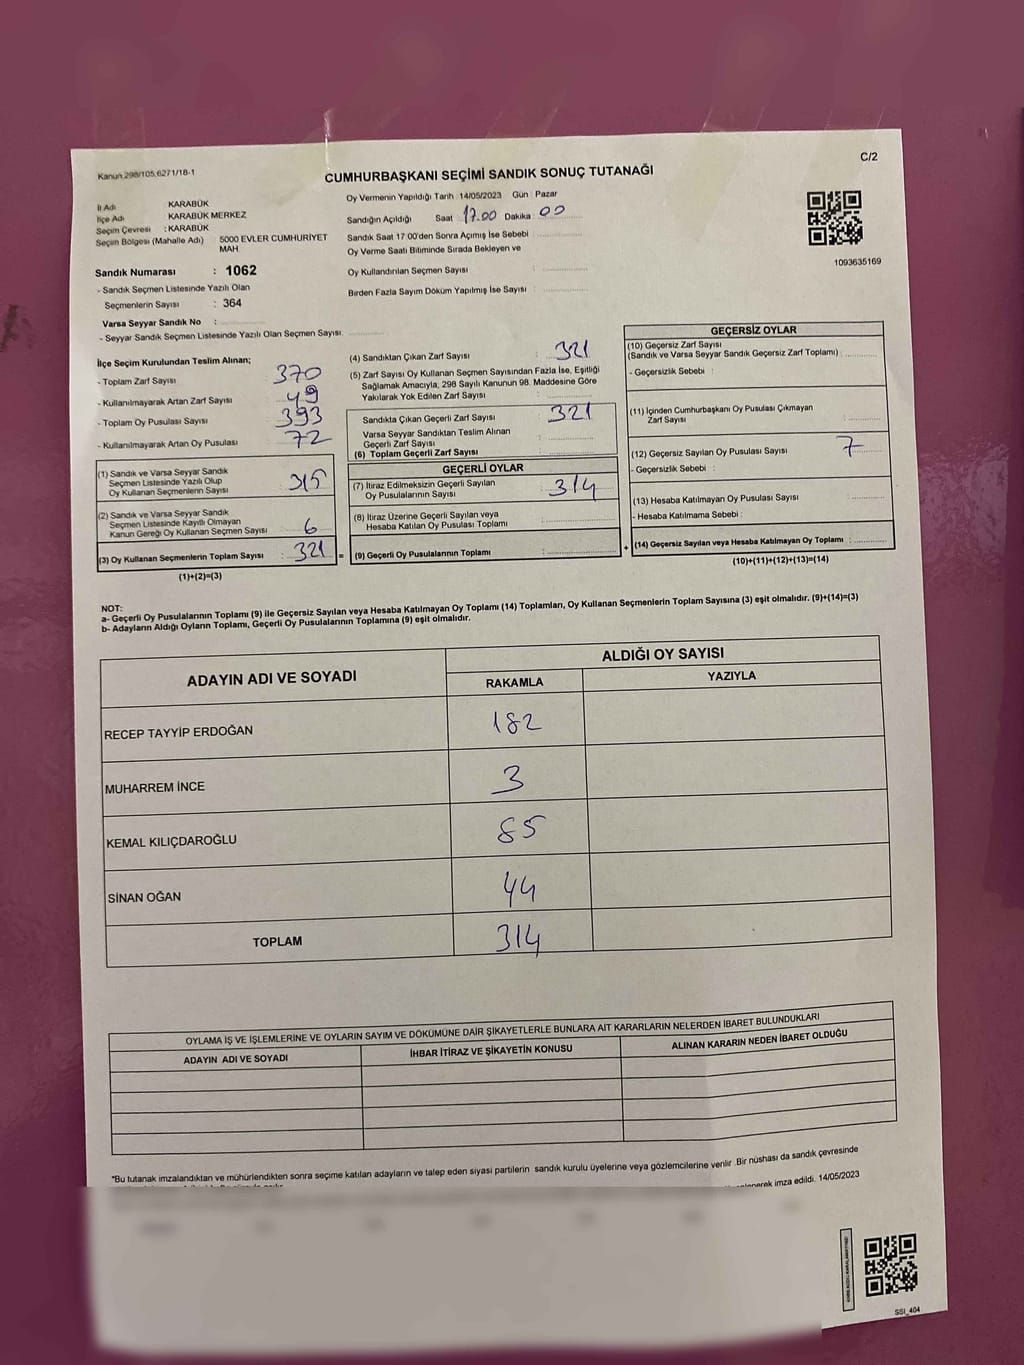 C/2
Kanun 298/105,6271/18-1
CUMHURBAŞKANI SEÇİMİ SANDIK SONUÇ TUTANAĞI
İl Adı KARABÜK
İlçe Adı KARABÜK MERKEZ
Seçim Çevresi : KARABÜK
Seçim Bölgesi (Mahalle Adı) 5000 EVLER CUMHURİYET
MAH
Sandık Numarası : 1062
- Sandık Seçmen Listesinde Yazılı Olan
Seçmenlerin Sayısı : 364
Varsa Seyyar Sandık No :
- Seyyar Sandık Seçmen Listesinde Yazılı Olan Seçmen Sayısı.
Oy Vermenin Yapıldığı Tarih : 14/05/2023 Gün : Pazar
Sandığın Açıldığı Saat 17.00 Dakika 00
Sandık Saat 17 00'den Sonra Açımış İse Sebebi :
Oy Verme Saati Bitiminde Sırada Bekleyen ve
Oy Kullandırılan Seçmen Sayısı :
Birden Fazla Sayım Döküm Yapılmış İse Sayısı :
1093635169
İlçe Seçim Kurulundan Teslim Alınan;
- Toplam Zarf Sayısı : 370
- Kullanılmayarak Artan Zarf Sayısı : 49
- Toplam Oy Pusulası Sayısı : 393
- Kullanılmayarak Artan Oy Pusulası : 72
(1) Sandık ve Varsa Seyyar Sandık
Seçmen Listesinde Yazılı Olup
Oy Kullanan Seçmenlerin Sayısı : 315
(2) Sandık ve Varsa Seyyar Sandık
Seçmen Listesinde Kayıtlı Olmayan
Kanun Gereği Oy Kullanan Seçmen Sayısı : 6
(3) Oy Kullanan Seçmenlerin Toplam Sayısı : 321 =
(1)+(2)=(3)
(4) Sandıktan Çıkan Zarf Sayısı : 321
(5) Zarf Sayısı Oy Kullanan Seçmen Sayısından Fazla İse, Eşitliği
Sağlamak Amacıyla, 298 Sayılı Kanunun 98. Maddesine Göre
Yakılarak Yok Edilen Zarf Sayısı :
Sandıkta Çıkan Geçerli Zarf Sayısı : 321
Varsa Seyyar Sandıktan Teslim Alınan
Geçerli Zarf Sayısı :
(6) Toplam Geçerli Zarf Sayısı :
GEÇERLİ OYLAR
(7) İtiraz Edilmeksizin Geçerli Sayılan
Oy Pusulalarının Sayısı : 314
(8) İtiraz Üzerine Geçerli Sayılan veya
Hesaba Katılan Oy Pusulası Toplamı :
(9) Geçerli Oy Pusulalarının Toplamı : +
GEÇERSİZ OYLAR
(10) Geçersiz Zarf Sayısı
(Sandık ve Varsa Seyyar Sandık Geçersiz Zarf Toplamı) :
- Geçersizlik Sebebi :
(11) İçinden Cumhurbaşkanı Oy Pusulası Çıkmayan
Zarf Sayısı :
(12) Geçersiz Sayılan Oy Pusulası Sayısı : 7
- Geçersizlik Sebebi :
(13) Hesaba Katılmayan Oy Pusulası Sayısı :
- Hesaba Katılmama Sebebi :
(14) Geçersiz Sayılan veya Hesaba Katılmayan Oy Toplamı :
(10)+(11)+(12)+(13)=(14)
NOT:
a- Geçerli Oy Pusulalarının Toplamı (9) ile Geçersiz Sayılan veya Hesaba Katılmayan Oy Toplamı (14) Toplamları, Oy Kullanan Seçmenlerin Toplam Sayısına (3) eşit olmalıdır. (9)+(14)=(3)
b- Adayların Aldığı Oyların Toplamı, Geçerli Oy Pusulalarının Toplamına (9) eşit olmalıdır.
ADAYIN ADI VE SOYADI
ALDIĞI OY SAYISI
RAKAMLA YAZIYLA
RECEP TAYYİP ERDOĞAN 182
MUHARREM İNCE 3
KEMAL KILIÇDAROĞLU 85
SİNAN OĞAN 44
TOPLAM 314
OYLAMA İŞ VE İŞLEMLERİNE VE OYLARIN SAYIM VE DÖKÜMÜNE DAİR ŞİKAYETLERLE BUNLARA AİT KARARLARIN NELERDEN İBARET BULUNDUKLARI
ADAYIN ADI VE SOYADI İHBAR İTİRAZ VE ŞİKAYETİN KONUSU ALINAN KARARIN NEDEN İBARET OLDUĞU
"Bu tutanak imzalandıktan ve mühürlendikten sonra seçime katılan adayların ve talep eden siyasi partilerin sandık kurulu üyelerine veya gözlemcilerine verilir Bir nüshası da sandık çevresinde
imza edildi. 14/05/2023
SSI_404